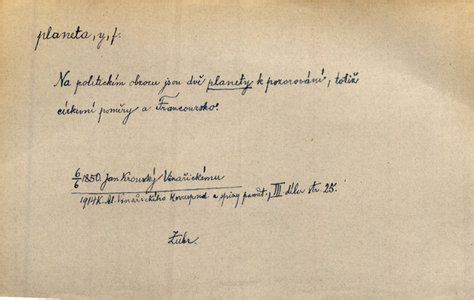 planeta, y, f.
Na politickém obzoru jsou dvě planety k pozorování, totiž
církevní poměry a Francouzsko.
6/6 1850. Jan Krouský Vinařickému
1914 K. Al. Vinařického Koresp. a spisy pamět., III. díl str. 25.